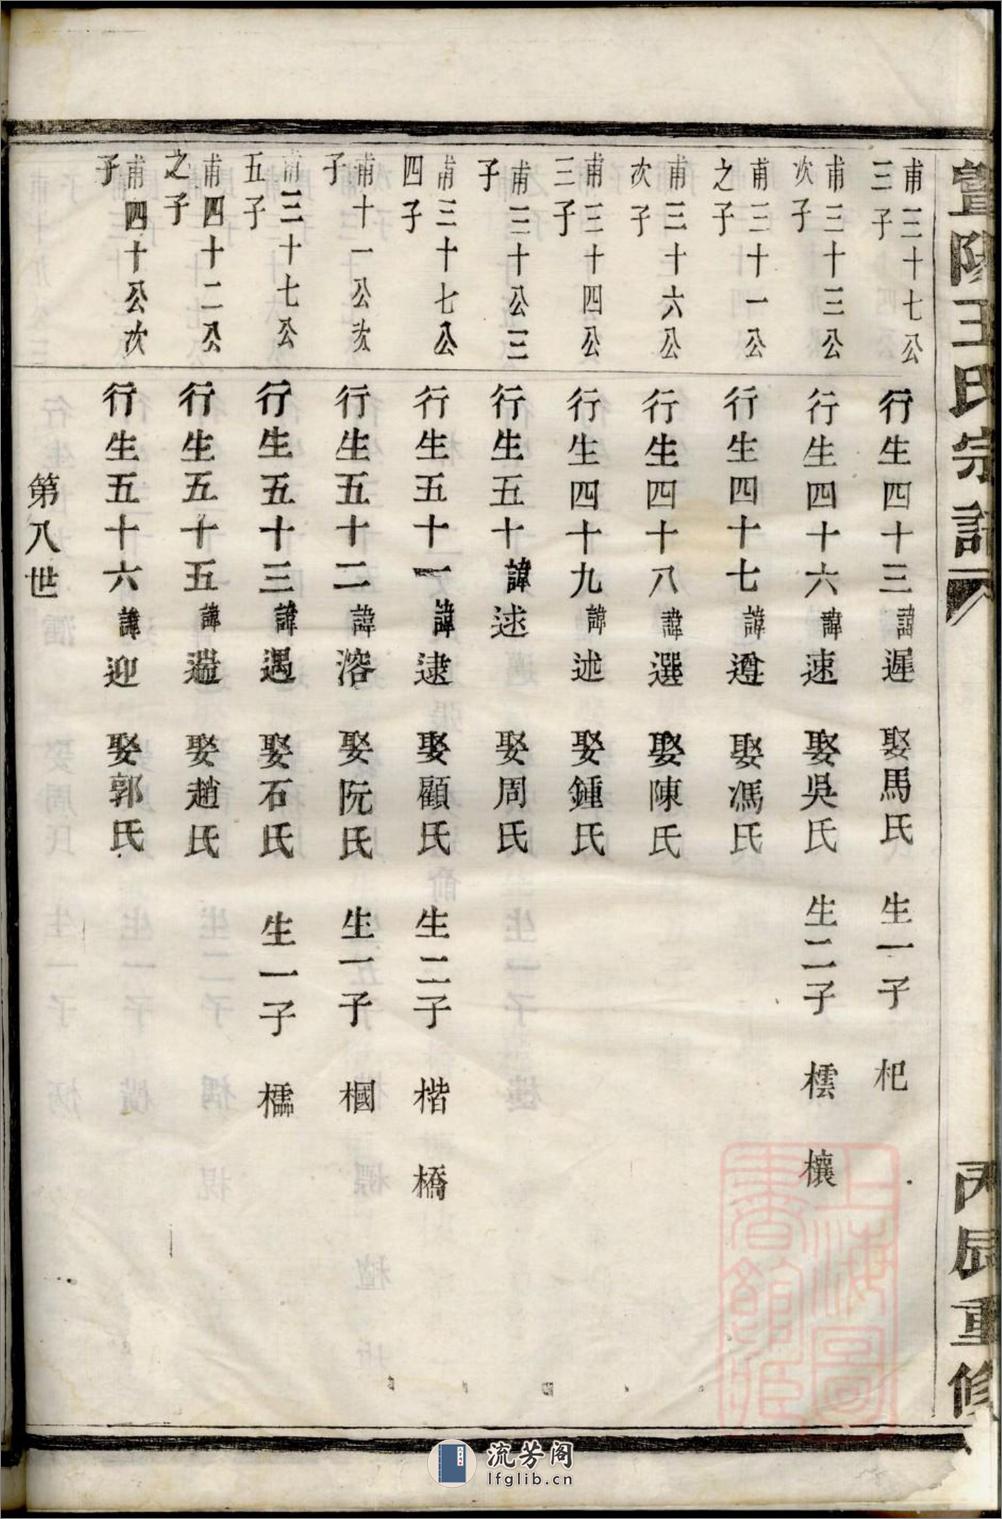 暨陽王氏宗譜
丙辰重修
甫三十七公三子
行生四十三諱遲 娶馬氏 生一子 杞
甫三十三公次子
行生四十六諱速 娶吳氏 生二子 橒 欀
甫三十一公之子
行生四十七諱遵 娶馮氏
甫三十六公次子
行生四十八諱選 娶陳氏
甫三十四公三子
行生四十九諱述 娶鍾氏
甫三十公三子
行生五十諱逑 娶周氏
甫三十七公四子
行生五十一諱逮 娶顧氏 生二子 楷 橋
甫十一公次子
行生五十二諱溶 娶阮氏 生一子 槶
甫三十七公五子
行生五十三諱遇 娶石氏 生一子 檽
甫四十二公之子
行生五十五諱 娶趙氏
甫四十公次子
行生五十六諱迎 娶郭氏
第八世
上海圖書館藏
流芳阁
lfglib.cn